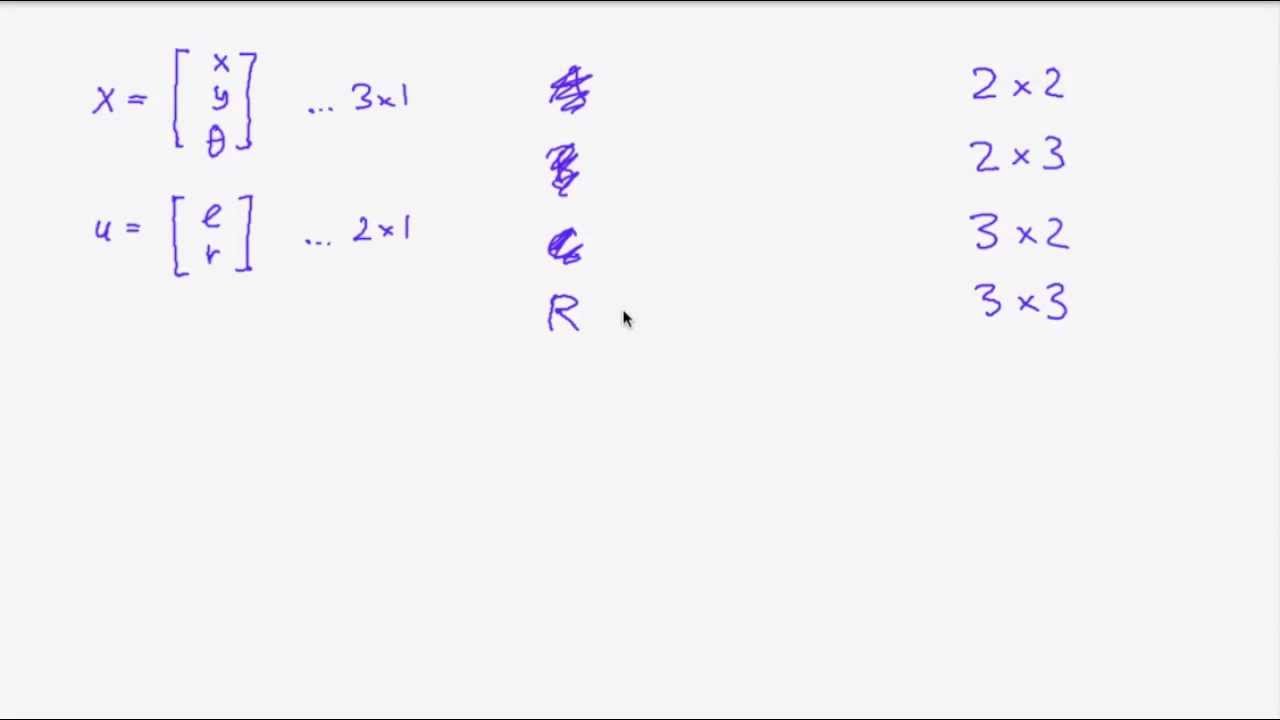 x = [ x y θ ] ... 3×1
u = [ e r ] ... 2×1
R
2 × 2
2 × 3
3 × 2
3 × 3